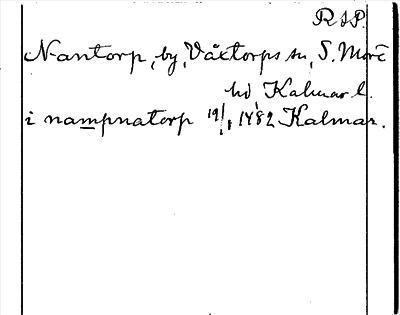 RAP.
Nantorp, by, Växtorps sn, S. Möre
hd Kalmar l.
i nampnatorp 19/1 1482 Kalmar.